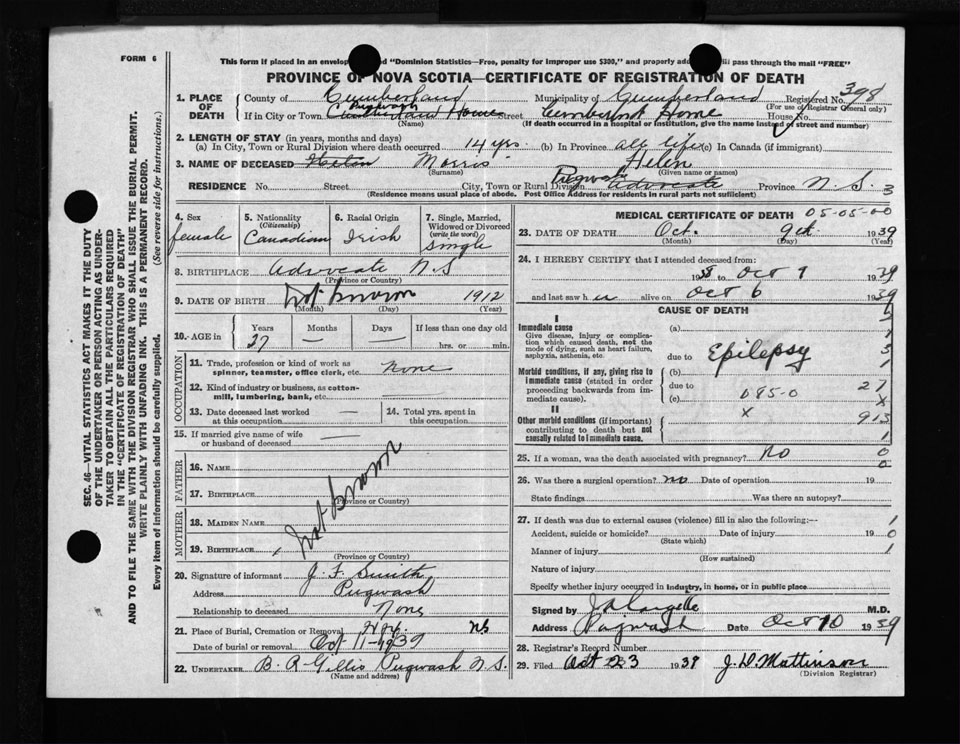 FORM 6
This form if placed in an envelop d "Dominion Statistics—Free, penalty for improper use $300," and properly add ill pass through the mail "FREE"
PROVINCE OF NOVA SCOTIA—CERTIFICATE OF REGISTRATION OF DEATH
1. PLACE OF DEATH County of Cumberland Municipality of Cumberland Registered No. 398
(For use of Registrar General only)
If in City or Town Pugwash Cumberland Home Street Cumberland Home House No.
(Name) (If death occurred in a hospital or institution, give the name instead of street and number)
2. LENGTH OF STAY (in years, months and days)
(a) In City, Town or Rural Division where death occurred 14 yrs. (b) In Province all life (c) In Canada (if immigrant)
3. NAME OF DECEASED Helen Morris Helen
(Surname) (Given name or names)
RESIDENCE No. Street City, Town or Rural Division Pugwash Advocate Province N.S. 3
(Residence means usual place of abode. Post Office Address for residents in rural parts not sufficient)
4. Sex female
5. Nationality (Citizenship) Canadian
6. Racial Origin Irish
7. Single, Married, Widowed or Divorced (write the word) Single
8. BIRTHPLACE Advocate N.S
(Province or Country)
9. DATE OF BIRTH Not known 1912
(Month) (Day) (Year)
10. AGE in Years 27 Months — Days — If less than one day old hrs. or min.
OCCUPATION
11. Trade, profession or kind of work as spinner, teamster, office clerk, etc. none
12. Kind of industry or business, as cotton-mill, lumbering, bank, etc. —
13. Date deceased last worked at this occupation —
14. Total yrs. spent in this occupation —
15. If married give name of wife or husband of deceased —
FATHER
16. NAME
17. BIRTHPLACE
(Province or Country)
Not known
MOTHER
18. MAIDEN NAME
19. BIRTHPLACE
(Province or Country)
20. Signature of informant J. F. Smith
Address Pugwash
Relationship to deceased None
21. Place of Burial, Cremation or Removal NS
Date of burial or removal Oct 11-1939
22. UNDERTAKER B. R. Gillis Pugwash N.S.
(Name and address)
MEDICAL CERTIFICATE OF DEATH 05-05-00
23. DATE OF DEATH Oct. 9th 1939
(Month) (Day) (Year)
24. I HEREBY CERTIFY that I attended deceased from
1938 to Oct 9 1939
and last saw her alive on Oct 6 1939
CAUSE OF DEATH
I
Immediate cause
Give disease, injury or complication which caused death, not the mode of dying, such as heart failure, asphyxia, asthenia, etc.
(a)
due to Epilepsy
Morbid conditions, if any, giving rise to immediate cause (stated in order proceeding backwards from immediate cause).
(b)
due to 085-0
(c)
II
Other morbid conditions (if important) contributing to death but not causally related to immediate cause.
x
27
x
913
25. If a woman, was the death associated with pregnancy? No
26. Was there a surgical operation? no Date of operation 19
State findings Was there an autopsy?
27. If death was due to external causes (violence) fill in also the following:—
Accident, suicide or homicide? Date of injury 19
(State which)
Manner of injury
(How sustained)
Nature of injury
Specify whether injury occurred in industry, in home, or in public place
Signed by M.D.
Address Pugwash Date Oct 10 1939
28. Registrar's Record Number
29. Filed Oct 23 1939 J. D. Mattinson
(Division Registrar)
SEC. 46—VITAL STATISTICS ACT MAKES IT THE DUTY
OF THE UNDERTAKER OR PERSON ACTING AS UNDER-
TAKER TO OBTAIN ALL THE PARTICULARS REQUIRED
IN THE "CERTIFICATE OF REGISTRATION OF DEATH"
AND TO FILE THE SAME WITH THE DIVISION REGISTRAR WHO SHALL ISSUE THE BURIAL PERMIT.
WRITE PLAINLY WITH UNFADING INK. THIS IS A PERMANENT RECORD.
Every item of information should be carefully supplied. (See reverse side for instructions.)